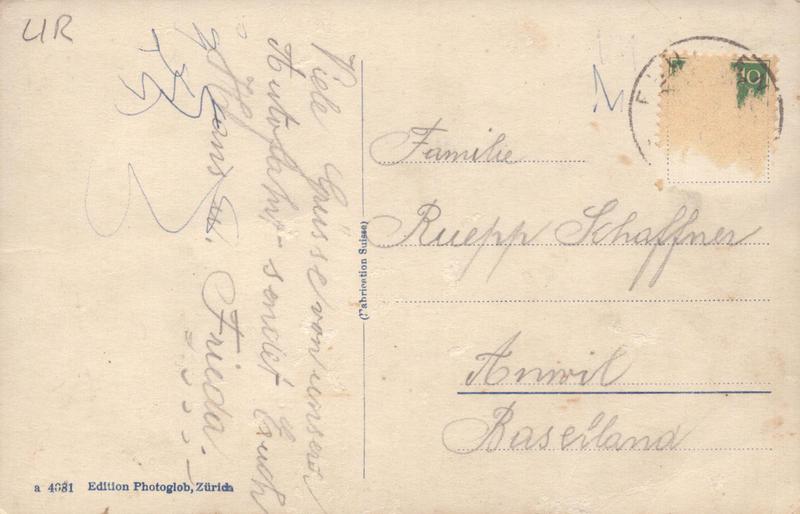 UR
Viele Grüsse von unserer
Autofahrt sendet Euch
Hans u. Frieda.
(Fabrication Suisse)
10
Familie
Ruepp Schaffner
Anwil
Baselland
a 4081 Edition Photoglob, Zürich